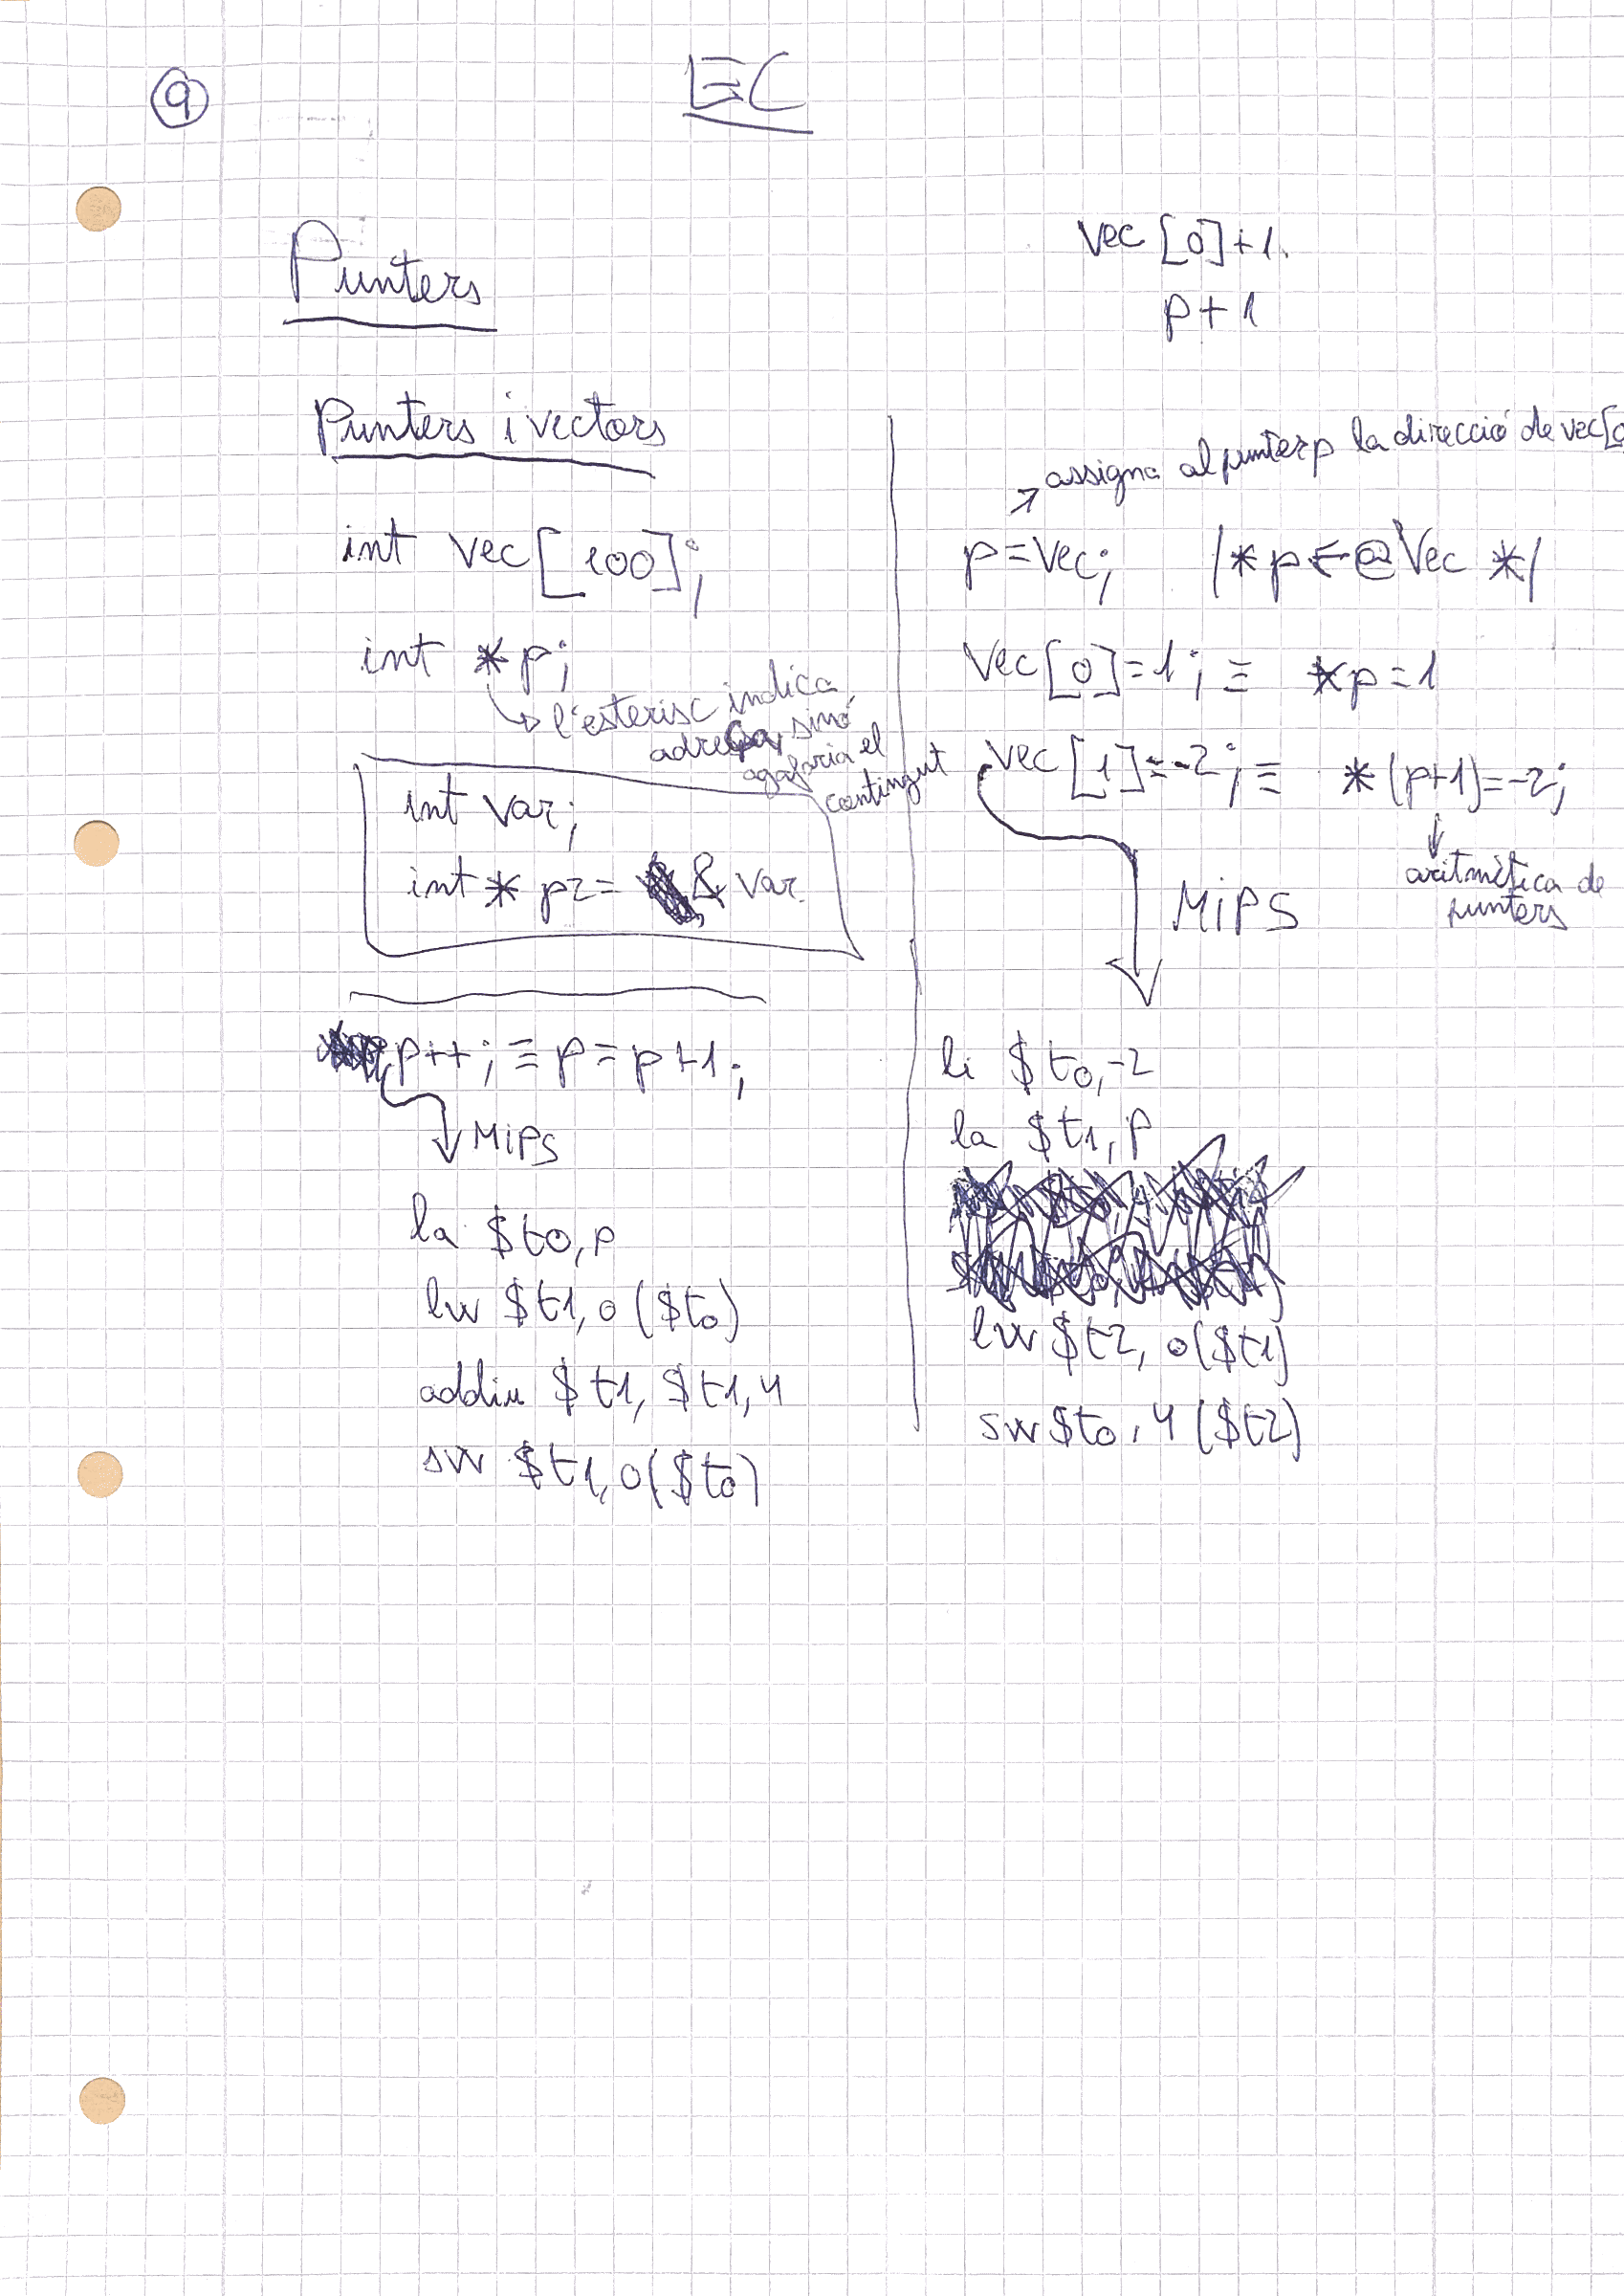 9
EC
Punters
Vec[0]+1.
p+1
Punters i vectors
int vec[100];
int *p;
l'esterisc indica
adreça, sinó
agafaria el
contingut
int var;
int* p2= &var.
p++; ≡ p=p+1;
MIPS
la $t0,p
lw $t1,0($t0)
addiu $t1,$t1,4
sw $t1,0($t0)
assigna al punter p la direcció de vec[0
p=Vec; /*p←@Vec */
Vec[0]=1; ≡ *p=1
Vec[1]=-2; ≡ *(p+1)=-2;
aritmètica de
punters
MIPS
li $t0,-2
la $t1,p
lw $t2,0($t1)
sw $t0,4($t2)